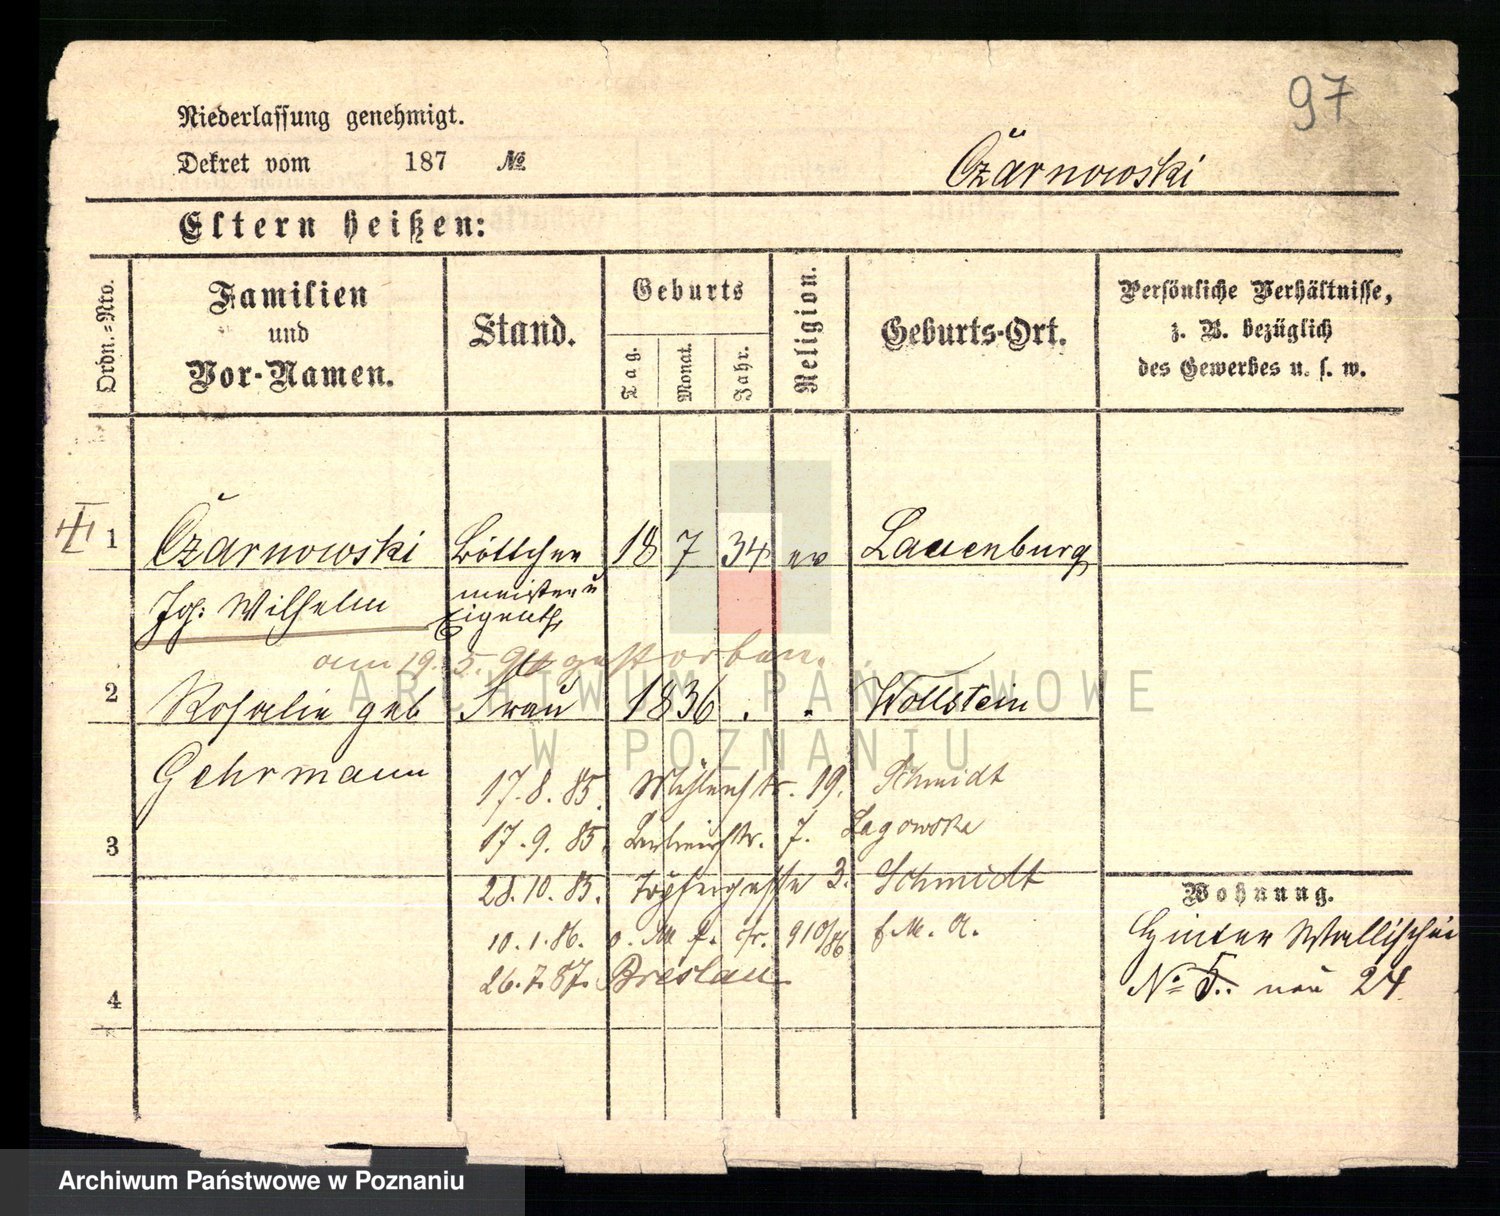 97
Niederlassung genehmigt.
Dekret vom 187 №
Czarnowski
Eltern heißen:
Ordn.-Nro.
Familien
und
Vor-Namen.
Stand.
Geburts
Tag.
Monat.
Jahr.
Religion.
Geburts-Ort.
Persönliche Verhältnisse,
z. B. bezüglich
des Gewerbes u. s. w.
1 Czarnowski Böttcher 18 7 34 ev Lauenburg
Joh: Wilhelm meister u
Eigenth.
am 19. 5. 90 gestorben.
2 Rosalie geb Frau 1836 . . Wollstein
Gehrmann
17. 8. 85. Mühlenstr. 19. Schmidt
3 17. 9. 85. str. 7. Lagowska
28. 10. 85. Töpfergasse 3. Schmidt
10. 1. 86. 910/86
26. 7. 87. Breslau
4
Wohnung.
Hinter Wallischei
No 5. neu 24
ARCHIWUM PAŃSTWOWE
W POZNANIU
Archiwum Państwowe w Poznaniu